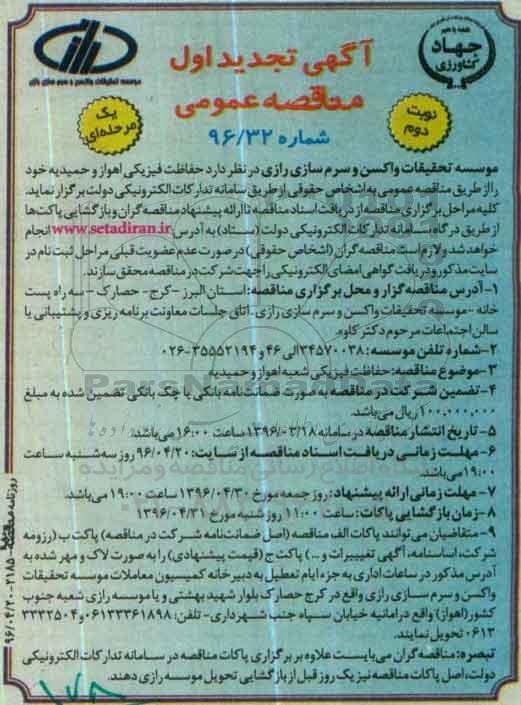 همه با هم
جهاد
کشاورزی
موسسه تحقیقات واکسن و سرم سازی رازی
آگهی تجدید اول
مناقصه عمومی
شماره ۹۶/۳۲
یک
مرحله‌ای
نوبت
دوم
موسسه تحقیقات واکسن و سرم سازی رازی در نظر دارد حفاظت فیزیکی اهواز و حمیدیه خود
را از طریق مناقصه عمومی به اشخاص حقوقی از طریق سامانه تدارکات الکترونیکی دولت برگزار نماید.
کلیه مراحل برگزاری مناقصه از دریافت اسناد مناقصه تا ارائه پیشنهاد مناقصه گران و بازگشایی پاکت‌ها
از طریق درگاه سامانه تدارکات الکترونیکی دولت (ستاد) به آدرس www.setadiran.ir انجام
خواهد شد و لازم است مناقصه گران (اشخاص حقوقی) در صورت عدم عضویت قبلی مراحل ثبت نام در
سایت مذکور و دریافت گواهی امضای الکترونیکی را جهت شرکت در مناقصه محقق سازند.
۱- آدرس مناقصه گزار و محل برگزاری مناقصه: استان البرز - کرج - حصارک - سه راه پست
خانه - موسسه تحقیقات واکسن و سرم سازی رازی - اتاق جلسات معاونت برنامه ریزی و پشتیبانی یا
سالن اجتماعات مرحوم دکتر کاوه.
۲- شماره تلفن موسسه: ۳۴۵۷۰۰۳۸ الی ۴۶ و ۳۵۵۵۲۱۹۴-۰۲۶
۳- موضوع مناقصه: حفاظت فیزیکی شعبه اهواز و حمیدیه
۴- تضمین شرکت در مناقصه به صورت ضمانت‌نامه بانکی یا چک بانکی تضمین شده به مبلغ
۱۰۰,۰۰۰,۰۰۰ ریال می‌باشد.
۵- تاریخ انتشار مناقصه در سامانه ۱۳۹۶/۰۳/۱۸ ساعت ۱۶:۰۰ می‌باشد.
۶- مهلت زمانی دریافت اسناد مناقصه از سایت: ۹۶/۰۴/۲۰ روز سه‌شنبه ساعت
۱۹:۰۰ می‌باشد.
۷- مهلت زمانی ارائه پیشنهاد: روز جمعه مورخ ۱۳۹۶/۰۴/۳۰ ساعت ۱۹:۰۰ می‌باشد.
۸- زمان بازگشایی پاکات: ساعت ۱۱:۰۰ روز شنبه مورخ ۱۳۹۶/۰۴/۳۱
۹- متقاضیان می‌توانند پاکات الف مناقصه (اصل ضمانت‌نامه شرکت در مناقصه) پاکت ب (رزومه
شرکت، اساسنامه، آگهی تغییرات و ...) پاکت ج (قیمت پیشنهادی) را به صورت لاک و مهر شده به
آدرس مذکور در ساعات اداری به جزء ایام تعطیل به دبیرخانه کمیسیون معاملات موسسه تحقیقات
واکسن و سرم سازی رازی واقع در کرج حصارک بلوار شهید بهشتی و یا موسسه رازی شعبه جنوب
کشور (اهواز) واقع در امانیه خیابان سپاه جنب شهرداری - تلفن: ۰۶۱۳۳۳۶۱۸۹۸ و ۳۳۳۲۵۰۴
۰۶۱۳ تحویل نمایند.
تبصره: مناقصه گران می‌بایست علاوه بر برگزاری پاکات مناقصه در سامانه تدارکات الکترونیکی
دولت، اصل پاکات مناقصه نیز یک روز قبل از بازگشایی تحویل موسسه رازی دهند.
۹۶/۰۴/۲۰-۲۱۸۵
ParsNamadData